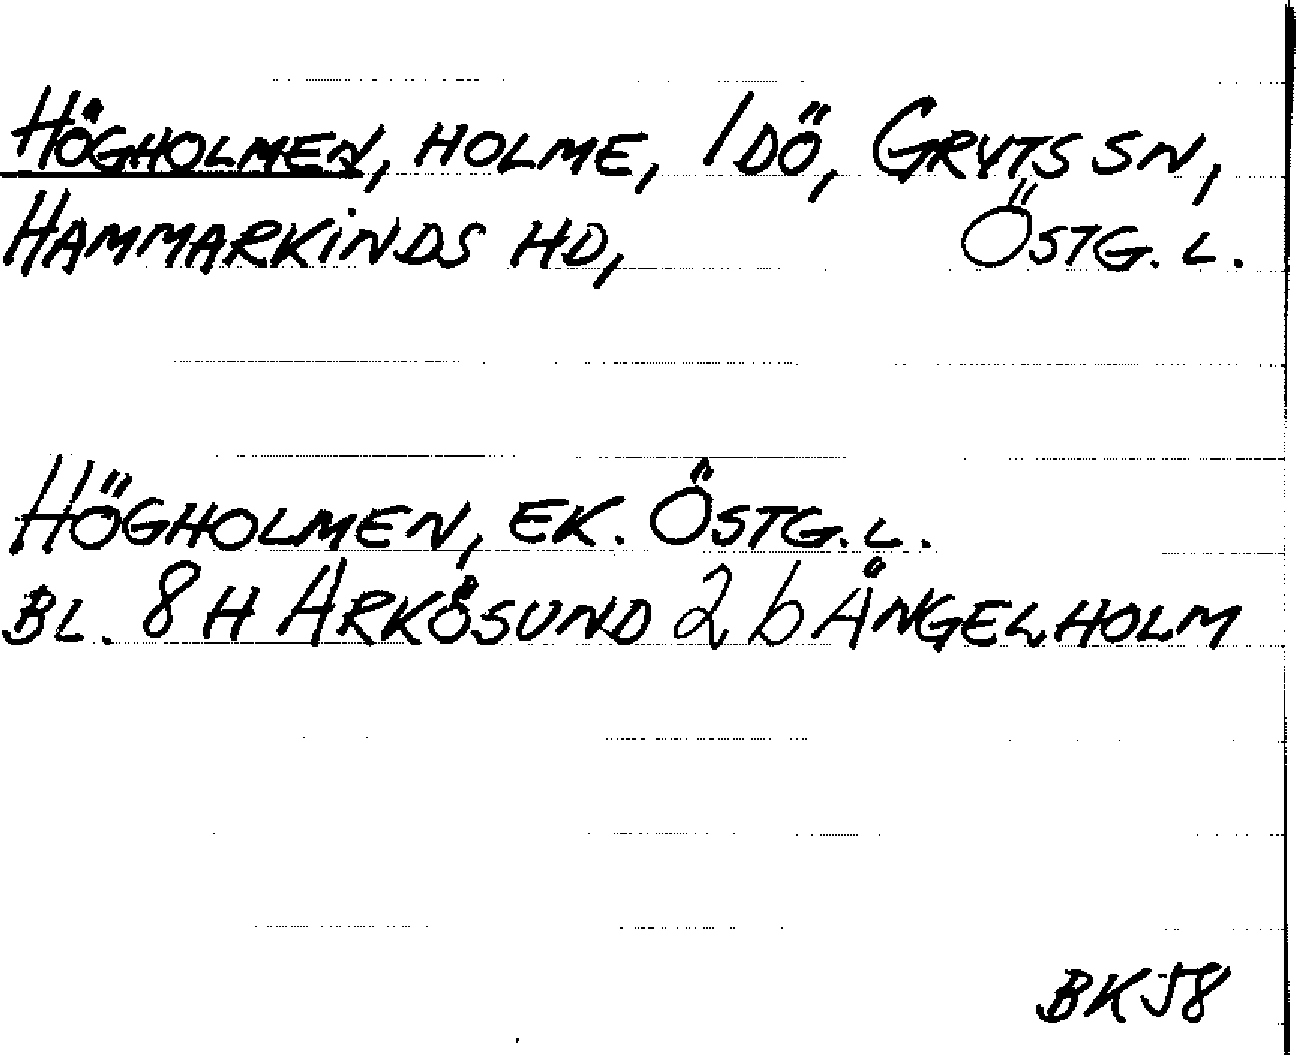 HÖGHOLMEN, HOLME, IDÖ, GRYTS SN,
HAMMARKINDS HD, ÖSTG. L.
HÖGHOLMEN, EK. ÖSTG. L.
BL. 8 H ARKÖSUND 2 b ÅNGELHOLM
BK58